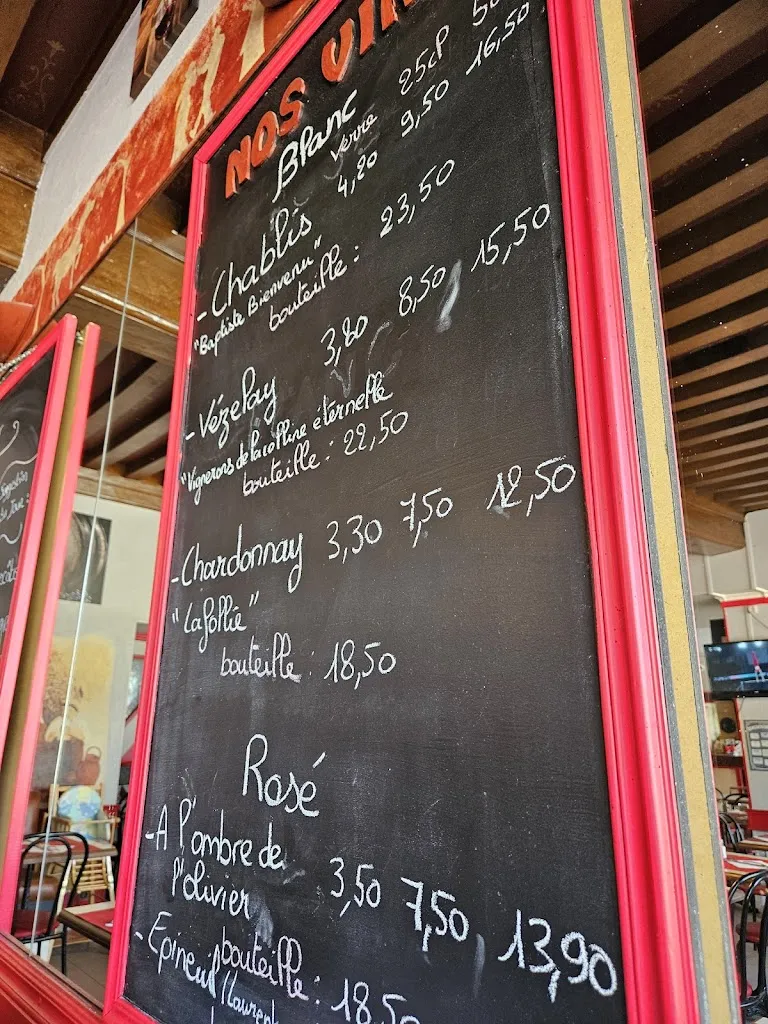 NOS VIN
Blanc verre 25cl 50
- Chablis 4,20 9,50 16,50
"Baptiste Bienvenu"
bouteille : 23,50
- Vézelay 3,80 8,50 15,50
"Vignerons de la colline éternelle
bouteille : 22,50
- Chardonnay 3,30 7,50 12,50
"Lafollie"
bouteille : 18,50
Rosé
- A l'ombre de
l'olivier 3,50 7,50 13,90
bouteille : 18,50
- Epineuil (Laurent